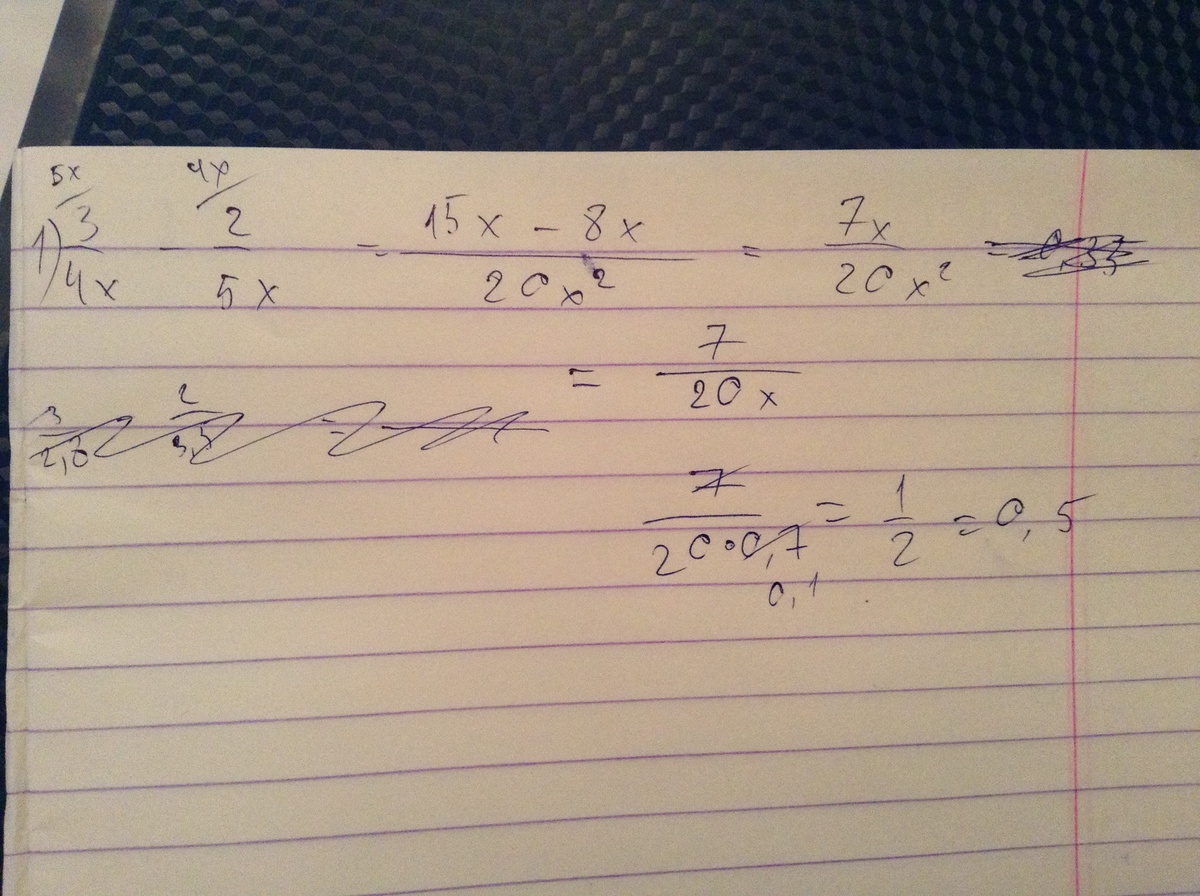 1) 3/4x (5x - 2/5x (4x = (15x - 8x)/20x² = 7x/20x²
= 7/20x
7/(20·0,7) = 1/2 = 0,5
0,1